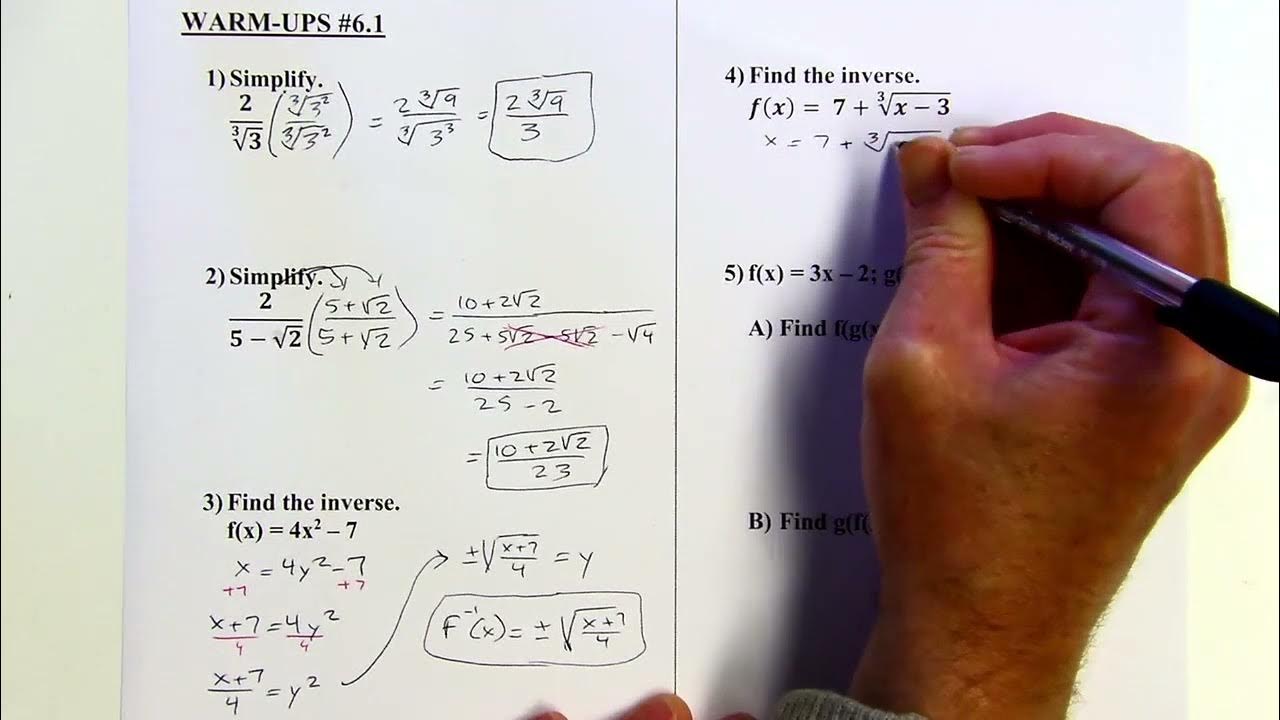 WARM-UPS #6.1
1) Simplify.
2/∛3 (∛3²/∛3²) = 2∛9/∛3³ = 2∛9/3
2) Simplify.
2/(5 − √2) (5+√2/5+√2) = 10+2√2/25+5√2−5√2−√4
= 10+2√2/25−2
= 10+2√2/23
3) Find the inverse.
f(x) = 4x² – 7
x = 4y² − 7
+7 +7
x+7 = 4y²
4 4
x+7/4 = y²
±√(x+7/4) = y
f⁻¹(x) = ±√(x+7/4)
4) Find the inverse.
f(x) = 7 + ∛(x − 3)
x = 7 + ∛
5) f(x) = 3x – 2;
A) Find f(g(
B) Find g(f(